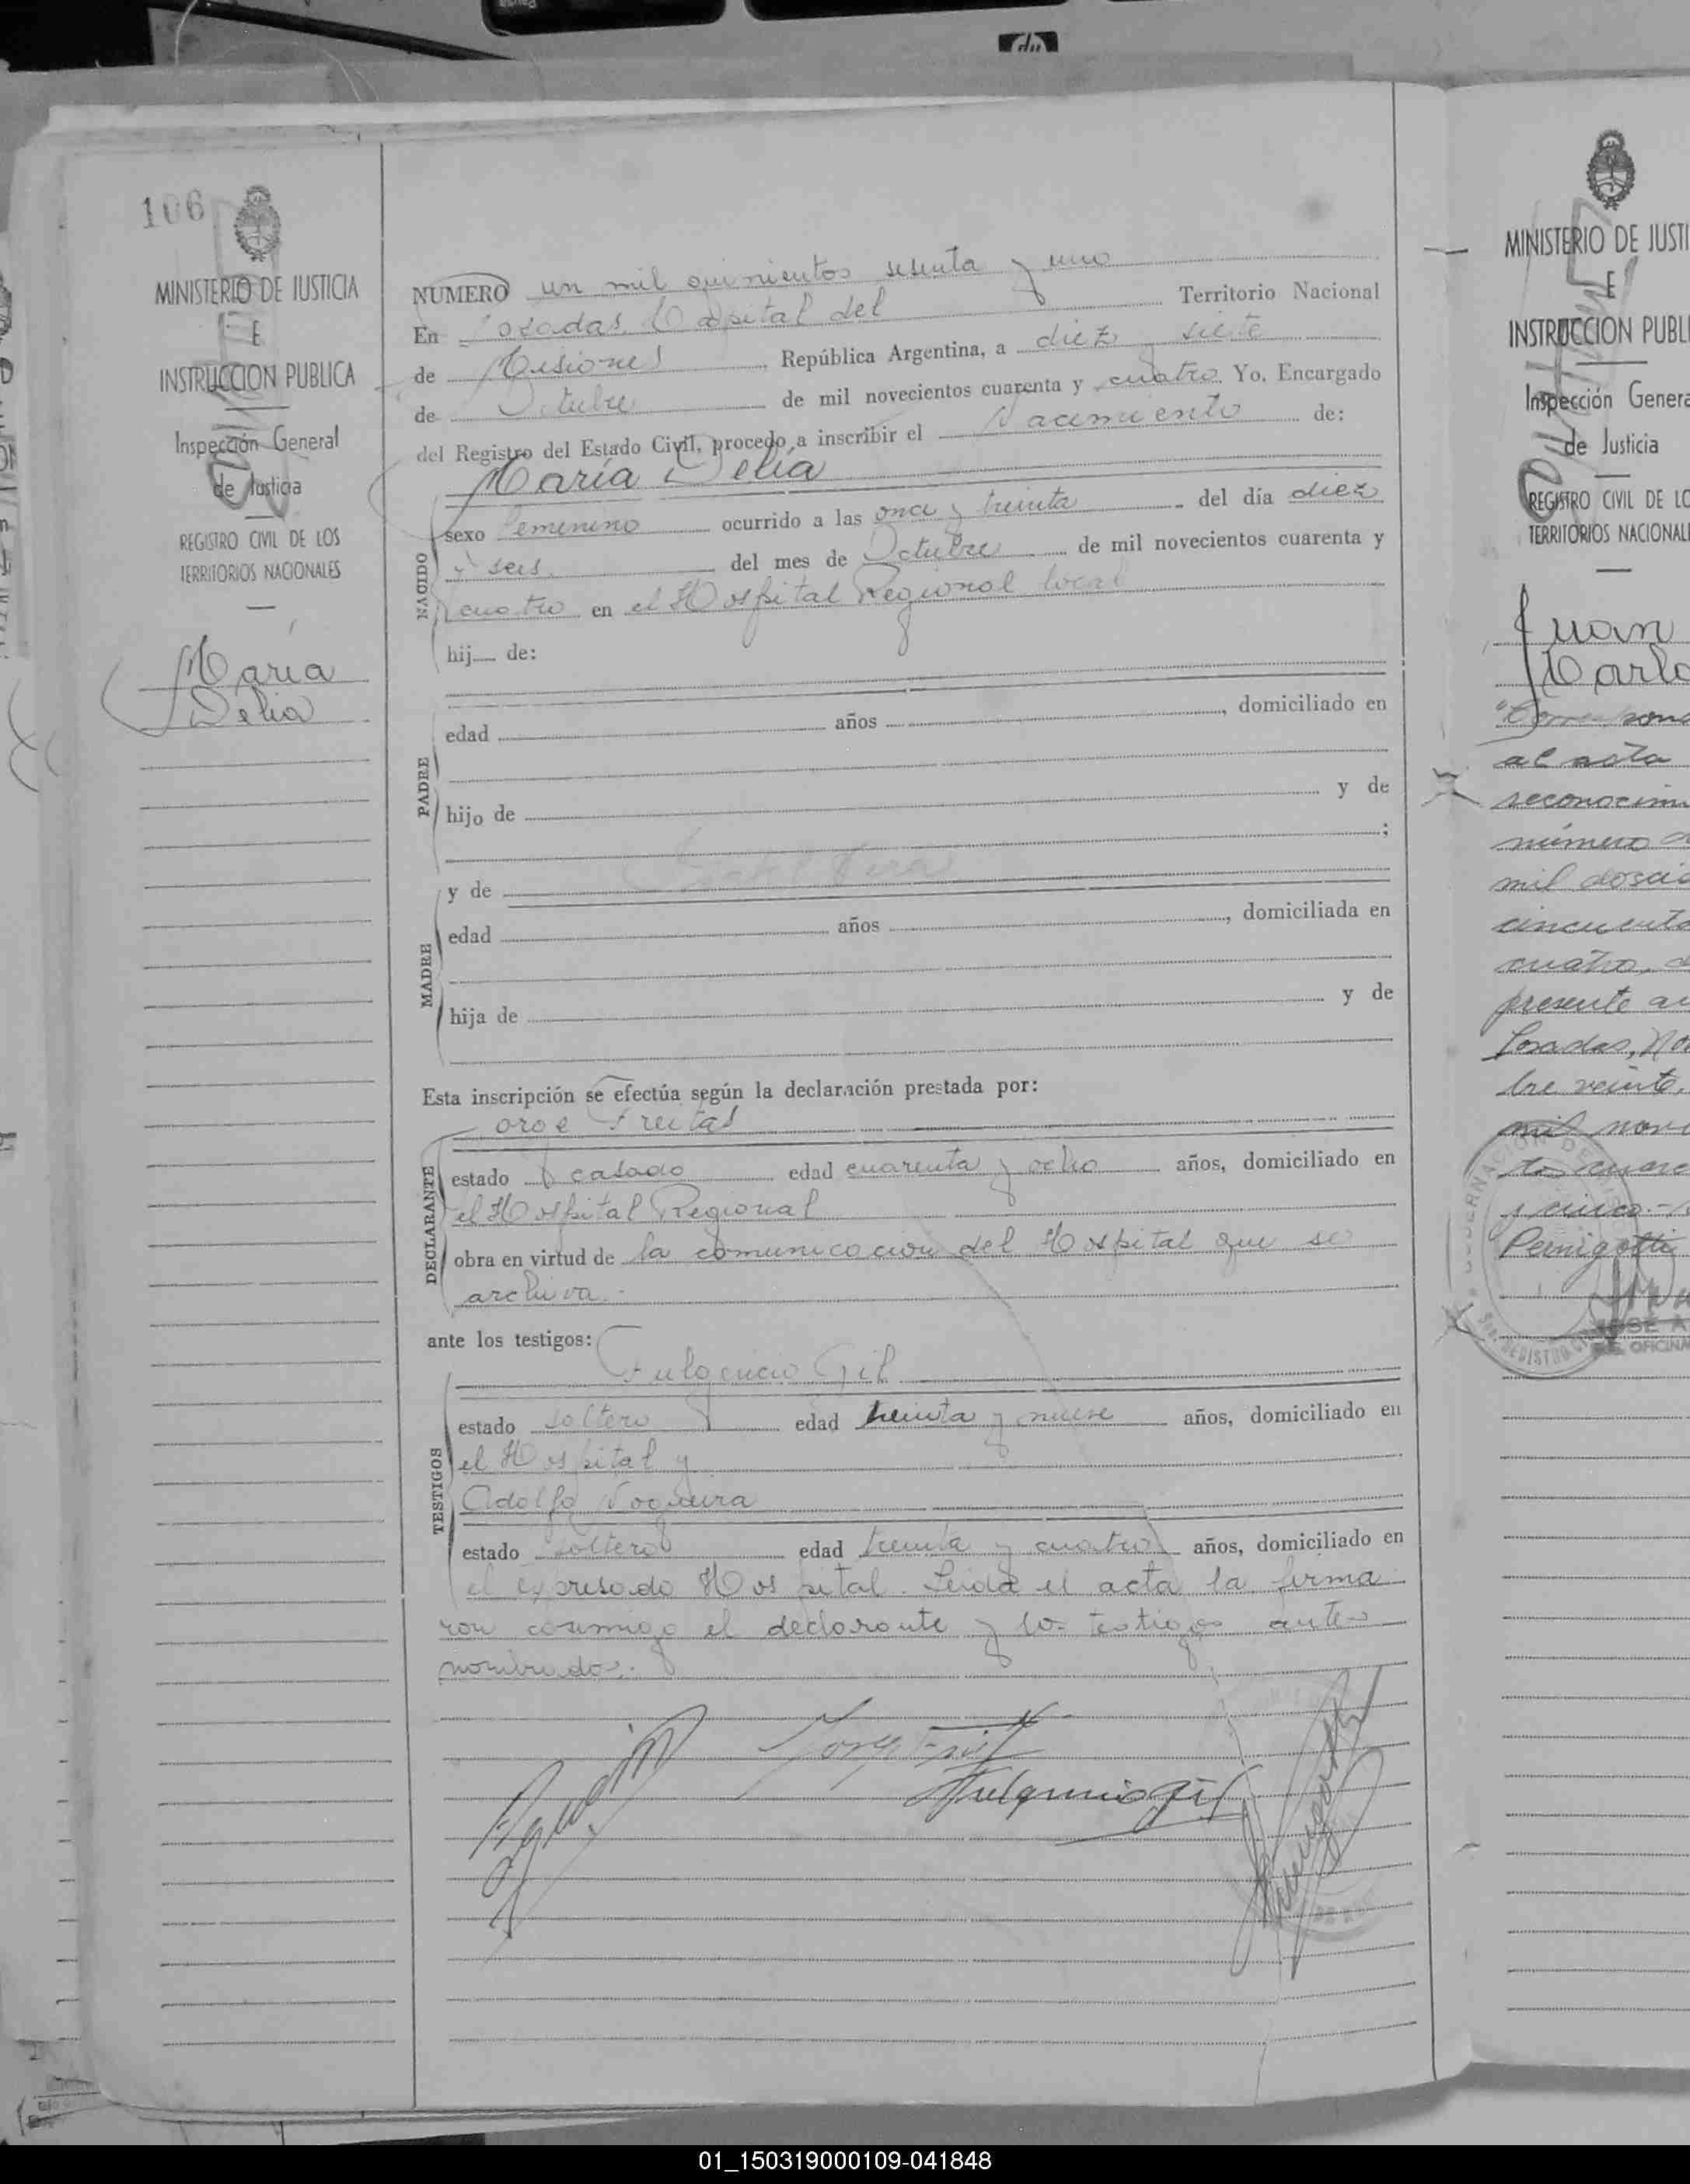 106
MINISTERIO DE JUSTICIA
E
INSTRUCCION PUBLICA
Inspección General
de Justicia
REGISTRO CIVIL DE LOS
TERRITORIOS NACIONALES
María
Delia
NUMERO un mil quinientos sesenta y uno
En Posadas, Capital del Territorio Nacional
de Misiones República Argentina, a diez y siete
de Octubre de mil novecientos cuarenta y cuatro Yo, Encargado
del Registro del Estado Civil, procedo a inscribir el Nacimiento de:
María Delia
NACIDO
sexo femenino ocurrido a las once y treinta del día diez
y seis del mes de Octubre de mil novecientos cuarenta y
cuatro en el Hospital Regional local
hij de:
PADRE
edad años , domiciliado en
hijo de y de
;
MADRE
y de Vera
edad años , domiciliada en
hija de y de
Esta inscripción se efectúa según la declaración prestada por:
DECLARANTE
Jorge Freitas
estado casado edad cuarenta y ocho años, domiciliado en
el Hospital Regional
obra en virtud de la comunicacion del Hospital que se
archiva.
ante los testigos:
TESTIGOS
Fulgencio Gil
estado soltero edad treinta y nueve años, domiciliado en
el Hospital y
Adolfo Nogueira
estado soltero edad treinta y cuatro años, domiciliado en
el expresado Hospital. Leida el acta la firma
ron conmigo el declarante y los testigos ante
nombrados.
Fulgencio Gil
MINISTERIO DE JUSTI
E
INSTRUCCION PUBLI
Inspección Genera
de Justicia
REGISTRO CIVIL DE LO
TERRITORIOS NACIONALE
Juan
Carlo
al acta
reconocimi
número
mil doscie
cincuenta
cuatro,
presente
Posadas, No
bre veinte,
mil nove
tos cuare
y cinco.-
Pernigotti
JOSE
OFICINA
01_150319000109-041848